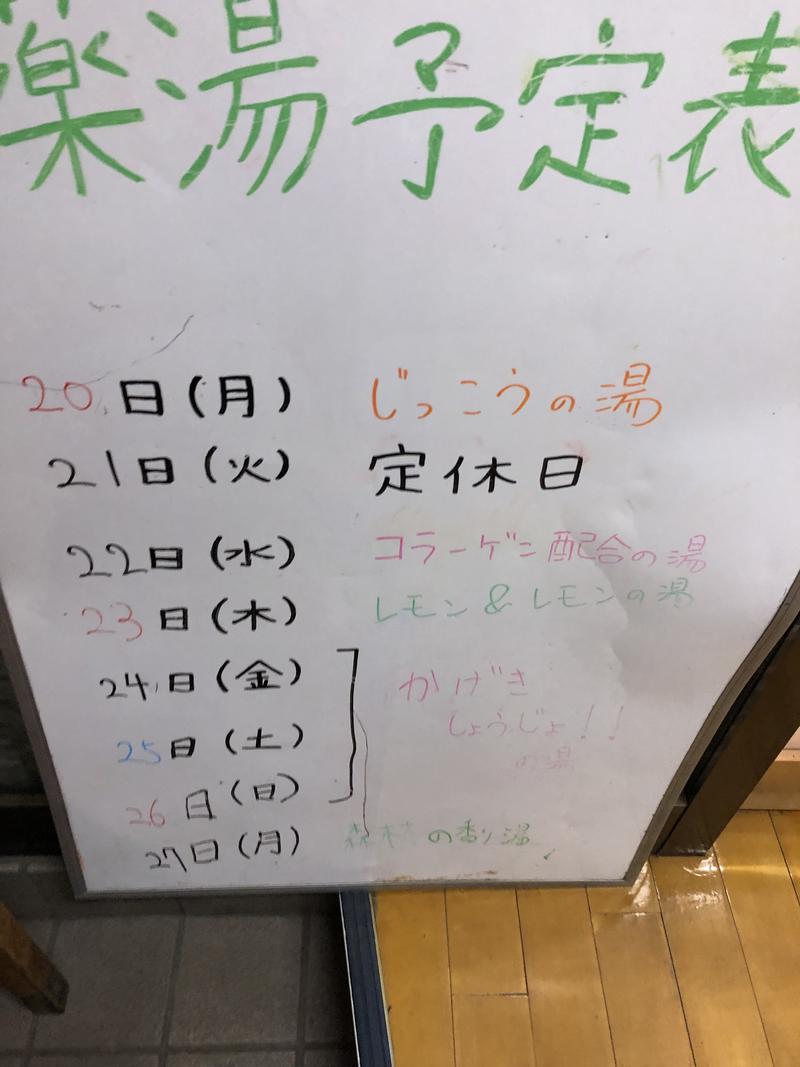 薬湯予定表
20日(月) じっこうの湯
21日(火) 定休日
22日(水) コラーゲン配合の湯
23日(木) レモン&レモンの湯
24日(金) かげき
25日(土) しょうじょ!!
26日(日) の湯
27日(月) 森林の香り湯